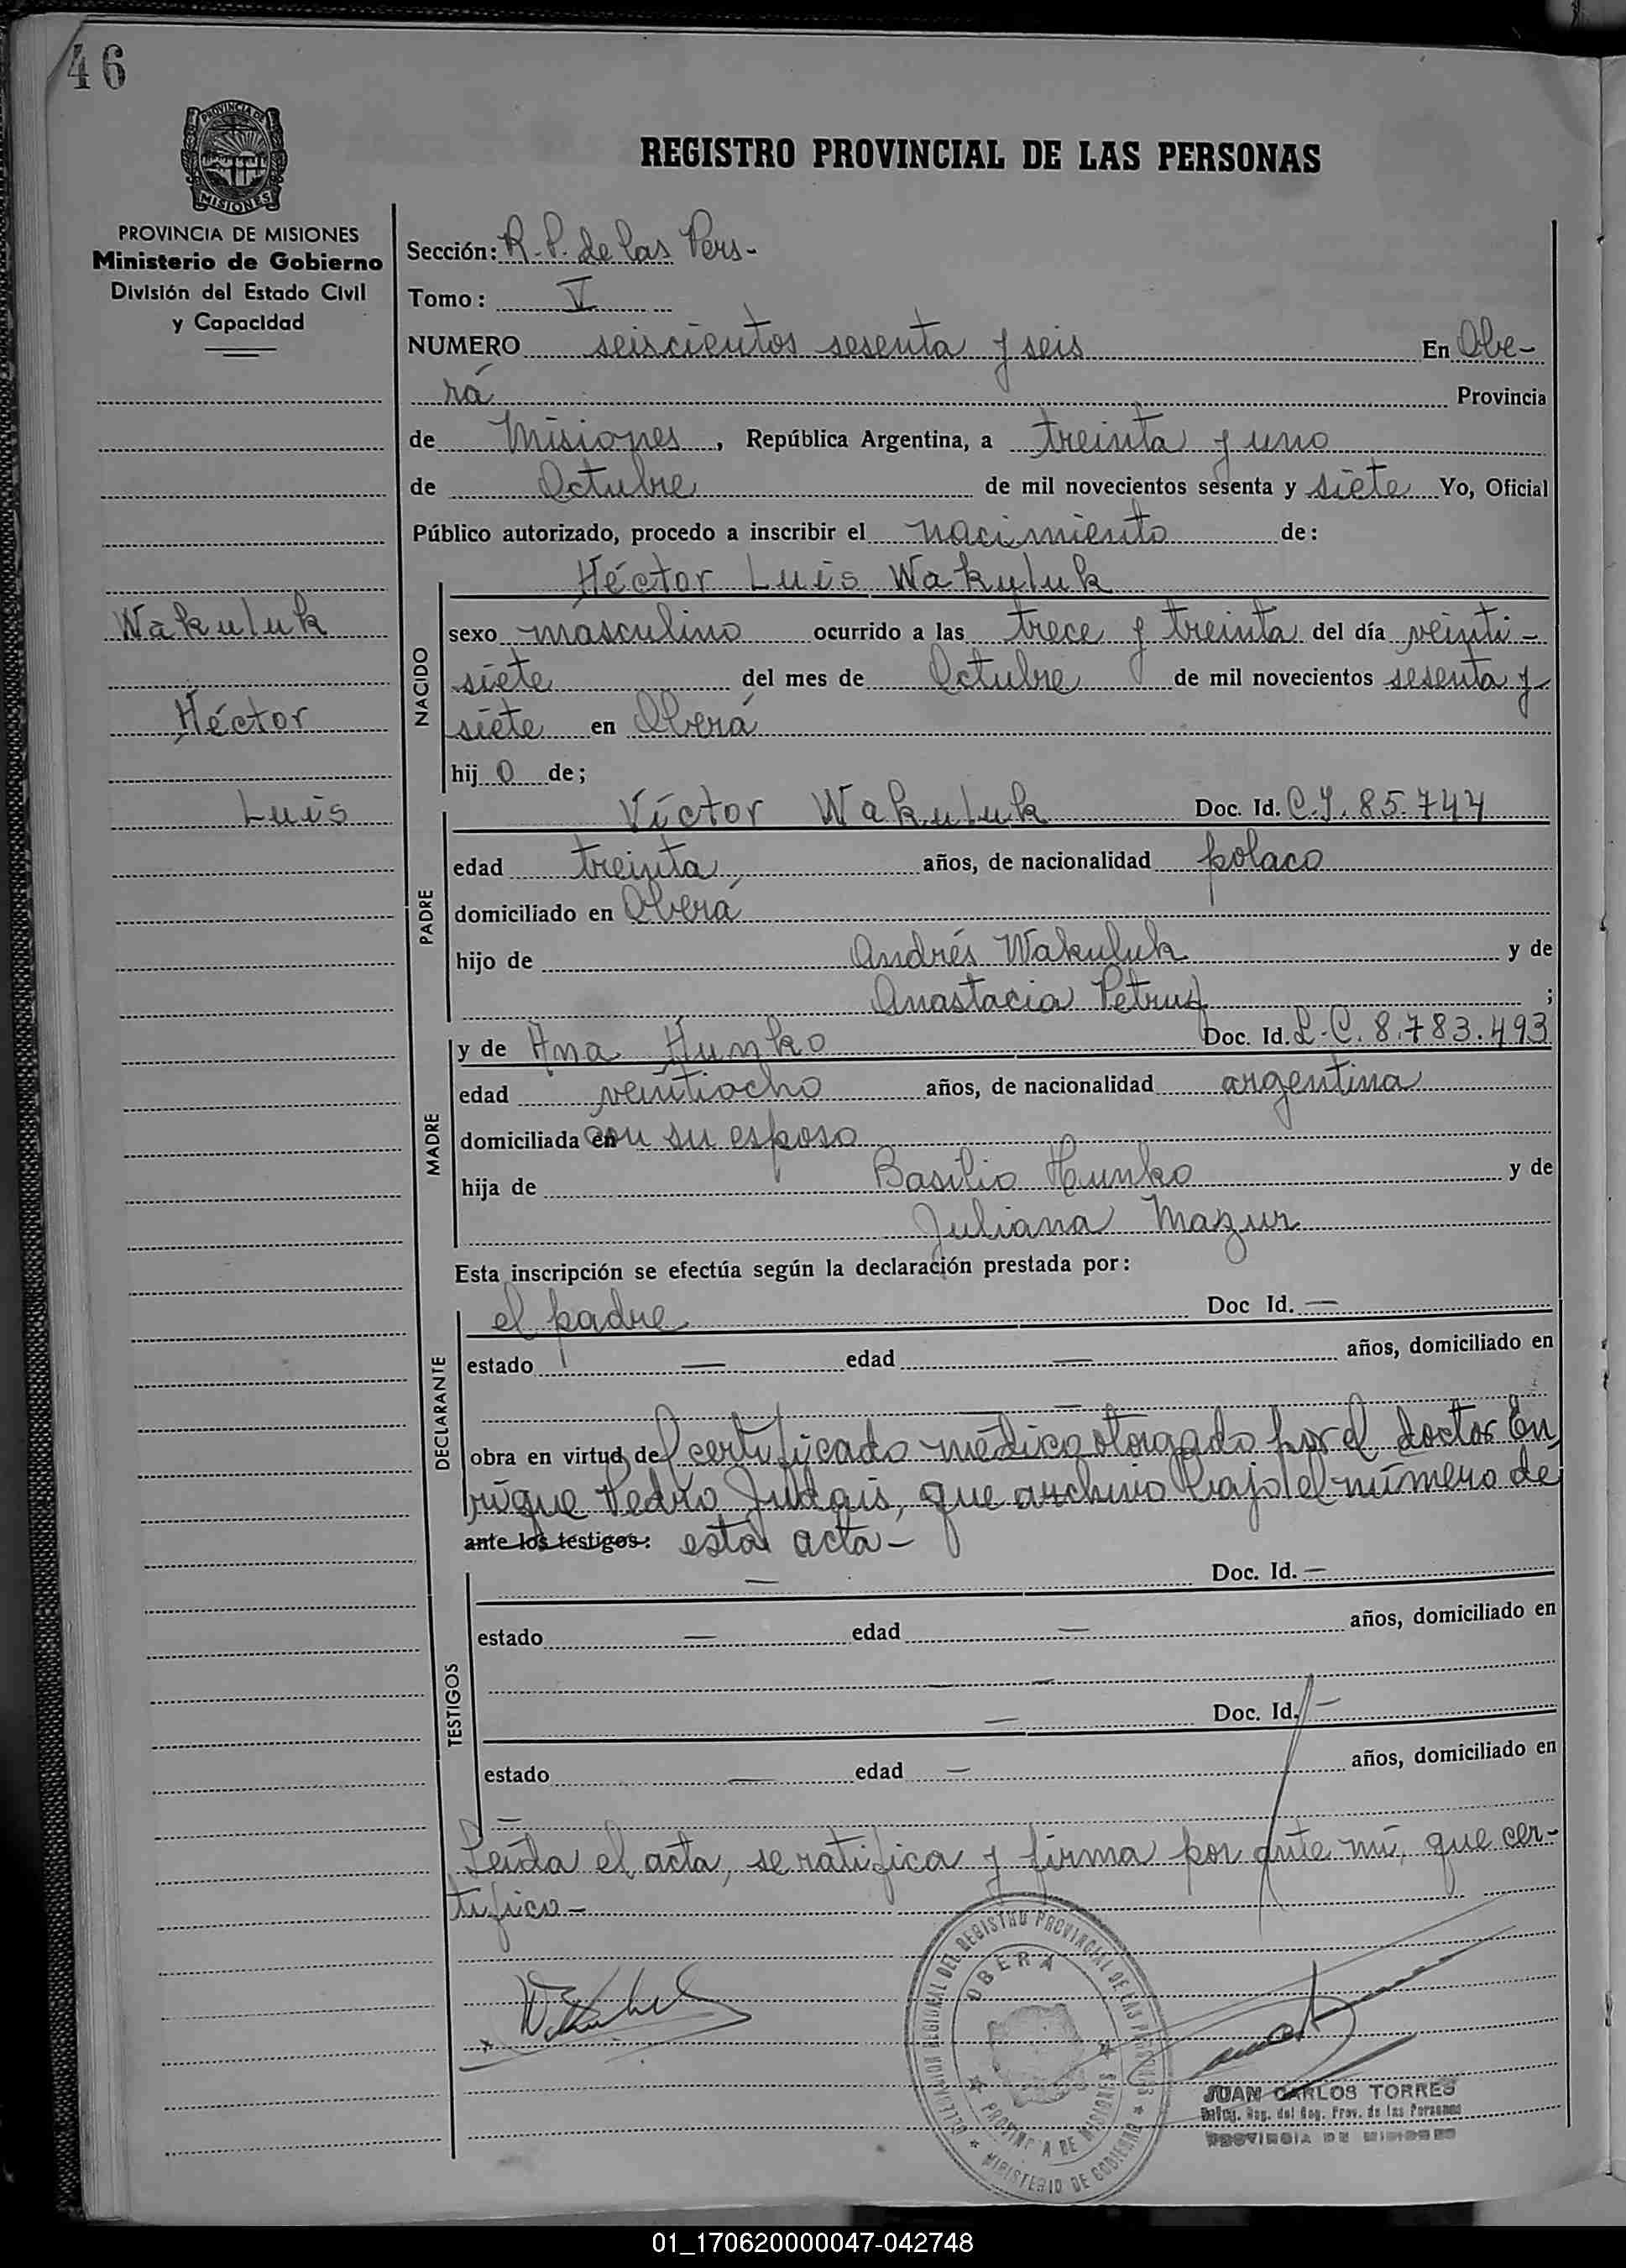 46
PROVINCIA DE
MISIONES
REGISTRO PROVINCIAL DE LAS PERSONAS
PROVINCIA DE MISIONES
Ministerio de Gobierno
División del Estado Civil
y Capacidad
Sección: R.P. de las Pers-
Tomo: V
NUMERO seiscientos sesenta y seis En Obe-
rá Provincia
de Misiones, República Argentina, a treinta y uno
de Octubre de mil novecientos sesenta y siete Yo, Oficial
Público autorizado, procedo a inscribir el nacimiento de:
Héctor Luis Wakuluk
Wakuluk
Héctor
Luis
NACIDO
sexo masculino ocurrido a las trece y treinta del día veinti-
siete del mes de Octubre de mil novecientos sesenta y
siete en Oberá
hijo de;
PADRE
Víctor Wakuluk Doc. Id. C.I. 85.744
edad treinta años, de nacionalidad polaco
domiciliado en Oberá
hijo de Andrés Wakuluk y de
Anastacia ;
MADRE
y de Ana Hunko Doc. Id. L.C. 8.783.493
edad veintiocho años, de nacionalidad argentina
domiciliada en con su esposo
hija de Basilio Hunko y de
Juliana Mazur
Esta inscripción se efectúa según la declaración prestada por:
DECLARANTE
el padre Doc Id. —
estado — edad — años, domiciliado en
—
obra en virtud del certificado médico otorgado por el doctor En
rique Pedro Judais, que archivo bajo el número de
ante los testigos: esta acta-
TESTIGOS
— Doc. Id. —
estado — edad — años, domiciliado en
—
— Doc. Id. —
estado — edad — años, domiciliado en
—
Leída el acta, se ratifica y firma por ante mí, que cer-
tifico-
REGIONAL DEL REGISTRO PROVINCIAL DE LAS PERSONAS
OBERA
PROVINCIA DE MISIONES
MINISTERIO DE GOBIERNO
JUAN CARLOS TORRES
Deleg. Reg. del Reg. Prov. de las Personas
PROVINCIA DE MISIONES
01_170620000047-042748